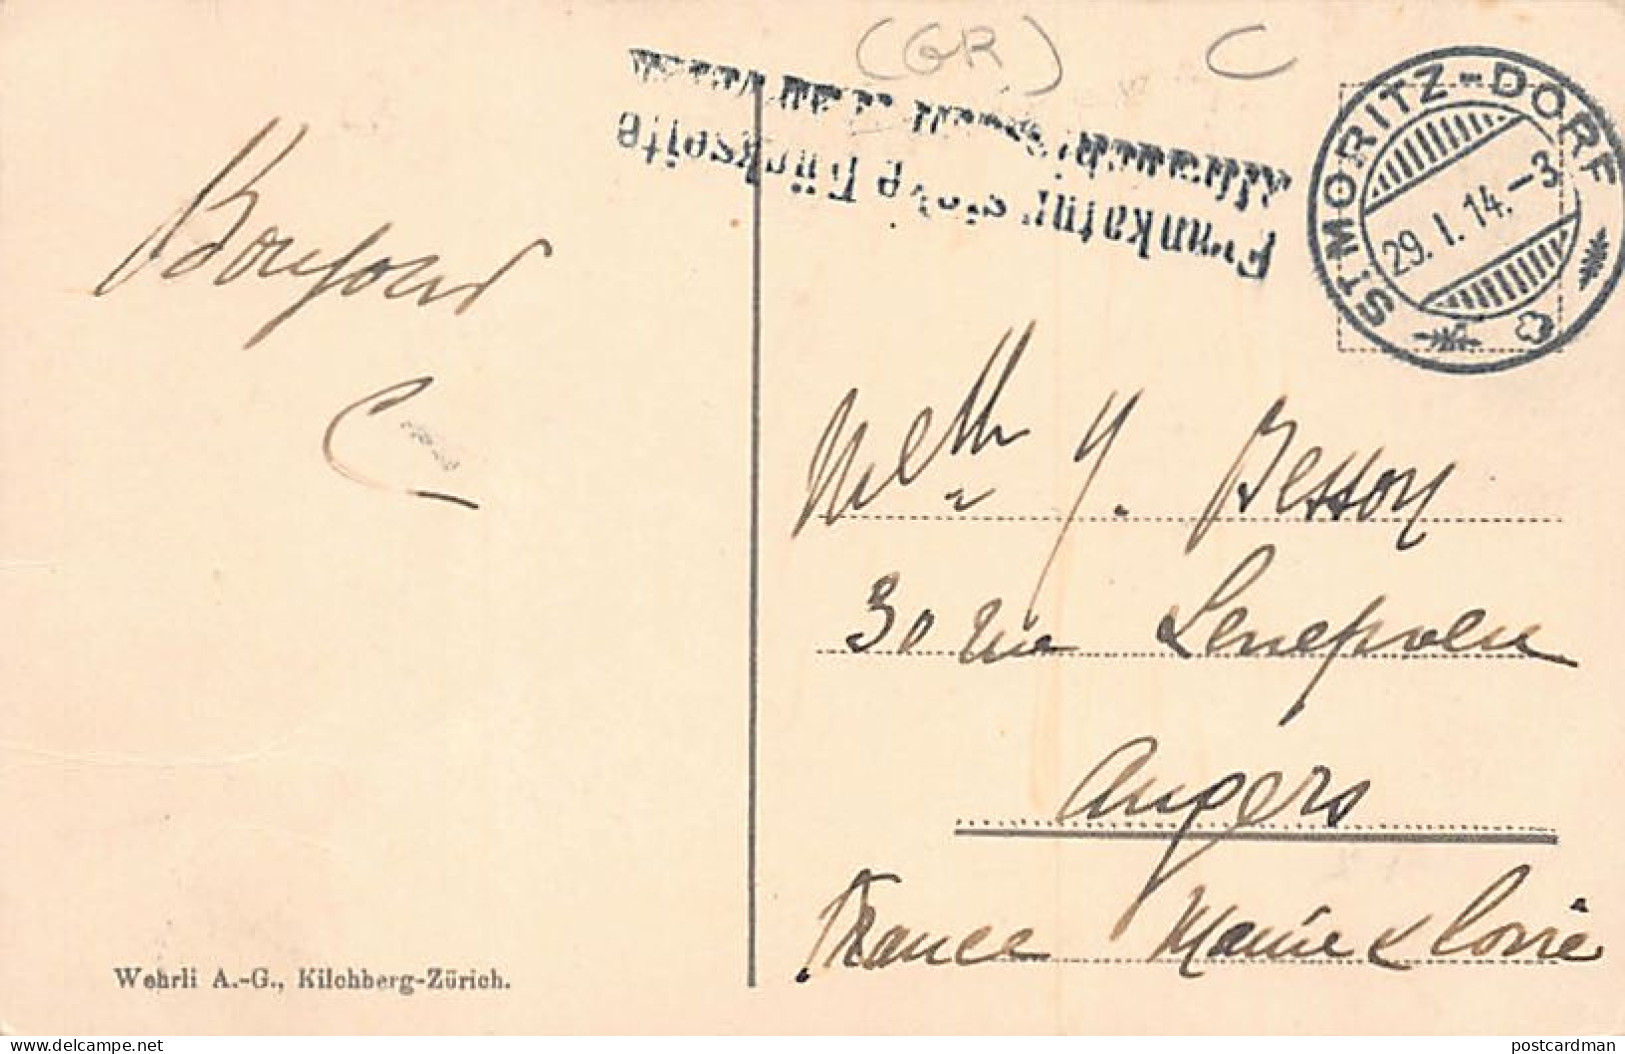 (GR) C
ST. MORITZ-DORF
29. I. 14. - 3
Frankatur siehe Rückseite
Bonjour
C
Melle Y. Besson
30 rue Lenepveu
Angers
France Maine & Loire
Wehrli A.-G., Kilchberg-Zürich.
delcampe.net
postcardman